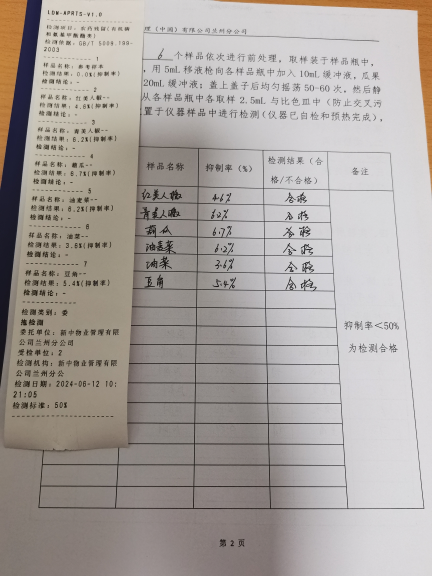 LDM-APRTS-V1.0
检测项目: 农药残留(有机磷
和氨基甲酸酯类)
检测依据: GB/T 5009.199-
2003
1
样品名称: 参考样本
检测结果: 0.0%(抑制率)
检测结论:
2
样品名称: 红美人椒--
检测结果: 4.6%(抑制率)
检测结论: -
3
样品名称: 青美人椒--
检测结果: 6.2%(抑制率)
检测结论: -
4
样品名称: 黄瓜--
检测结果: 6.7%(抑制率)
检测结论: -
5
样品名称: 油麦菜--
检测结果: 6.2%(抑制率)
检测结论: -
6
样品名称: 油菜--
检测结果: 3.6%(抑制率)
检测结论: -
7
样品名称: 豆角--
检测结果: 5.4%(抑制率)
检测结论: -
检测类别: 委
托检测
委托单位: 新中物业管理有限
公司兰州分公司
受检单位: 2
检测机构: 新中物业管理有限
公司兰州分公
检测日期: 2024-06-12 10:
21:05
检测标准: 50%
理（中国）有限公司兰州分公司
6 个样品依次进行前处理，取样装于样品瓶中，
，用 5mL 移液枪向各样品瓶中加入 10mL 缓冲液，瓜果
20mL 缓冲液；盖上盖子后均匀摇荡 50-60 次，然后静
从各样品瓶中各取样 2.5mL 与比色皿中（防止交叉污
置于仪器样品中进行检测（仪器已自检和预热完成），
样品名称 抑制率（%） 检测结果（合格/不合格） 备注
红美人椒 4.6% 合格
青美人椒 6.2% 合格
黄瓜 6.7% 合格
油麦菜 6.2% 合格
油菜 3.6% 合格
豆角 5.4% 合格
抑制率＜50%
为检测合格
第 2 页